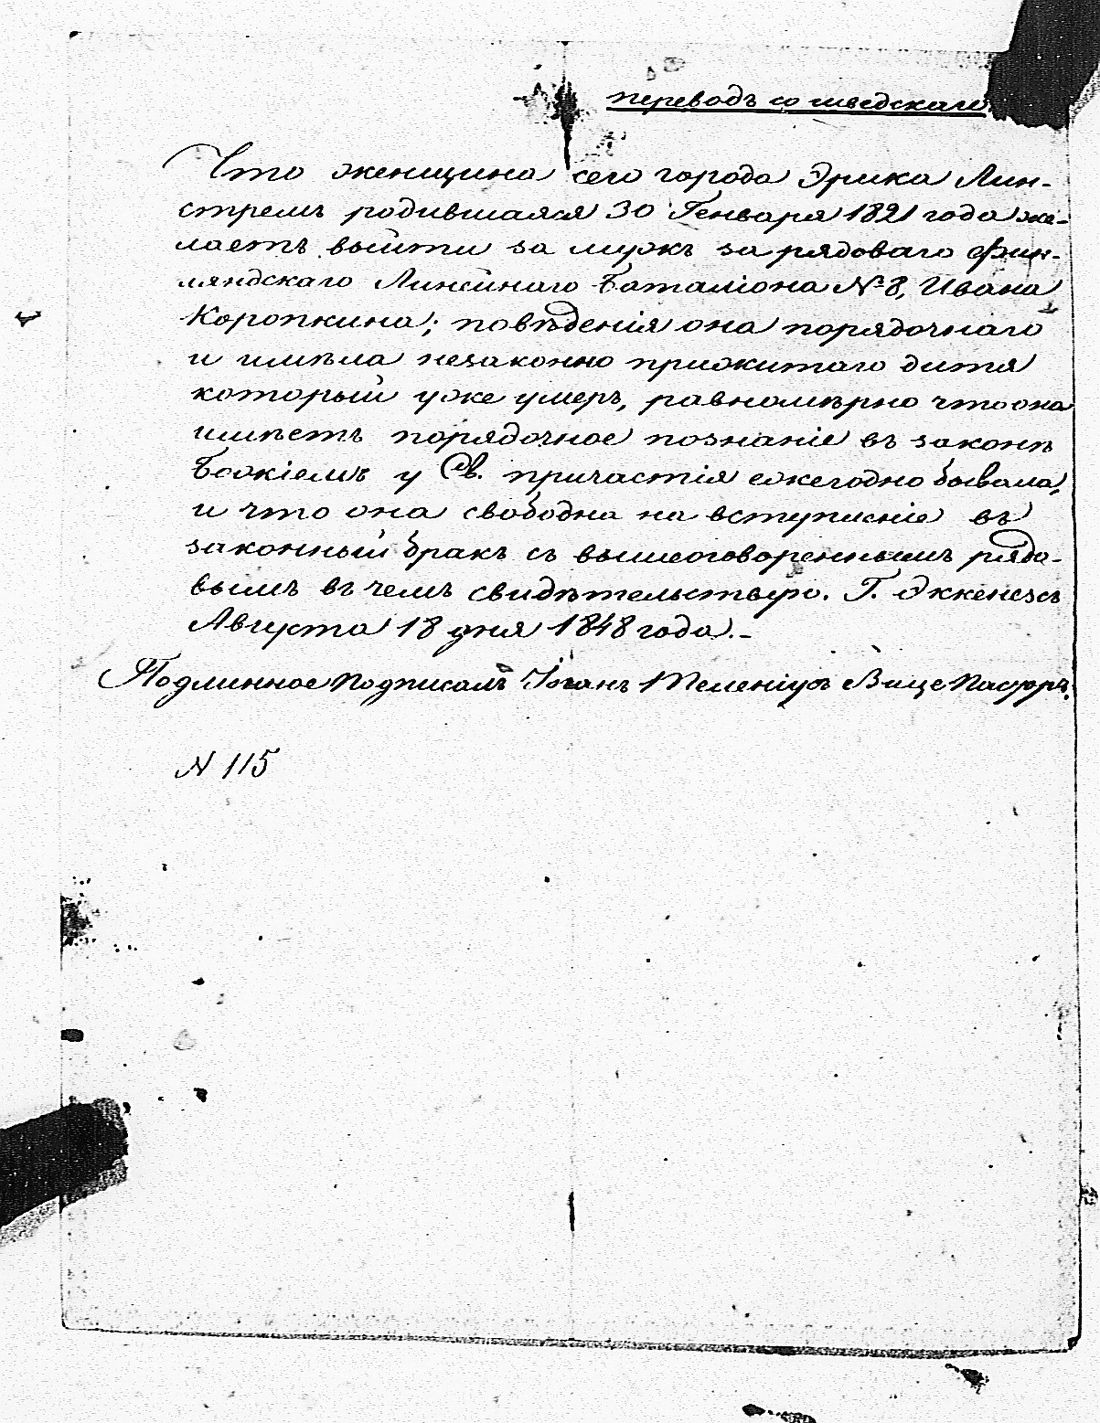 переводъ со шведскаго
Что женщина сего города Эрика Лин-
стремъ родившаяся 30 Генваря 1821 года же-
лаетъ выйти за мужъ за рядоваго Фин-
ляндскаго Линейнаго Баталіона № 8, Ивана
Коропкина; повѣденія она порядочнаго
и имѣла незаконно прижитаго дитя
который уже умеръ, равномѣрно что она
имѣетъ порядочное познаніе въ законѣ
Божіемъ у Св. причастія ежегодно бывала,
и что она свободна на вступленіе въ
законный бракъ съ вышеоговореннымъ рядо-
вымъ въ чемъ свидѣтельствую. Г. Эккенезъ
Августа 18 дня 1848 года.-
Подлинное подписалъ Іоганъ Меленіусъ Вице Пасторъ.
N 115